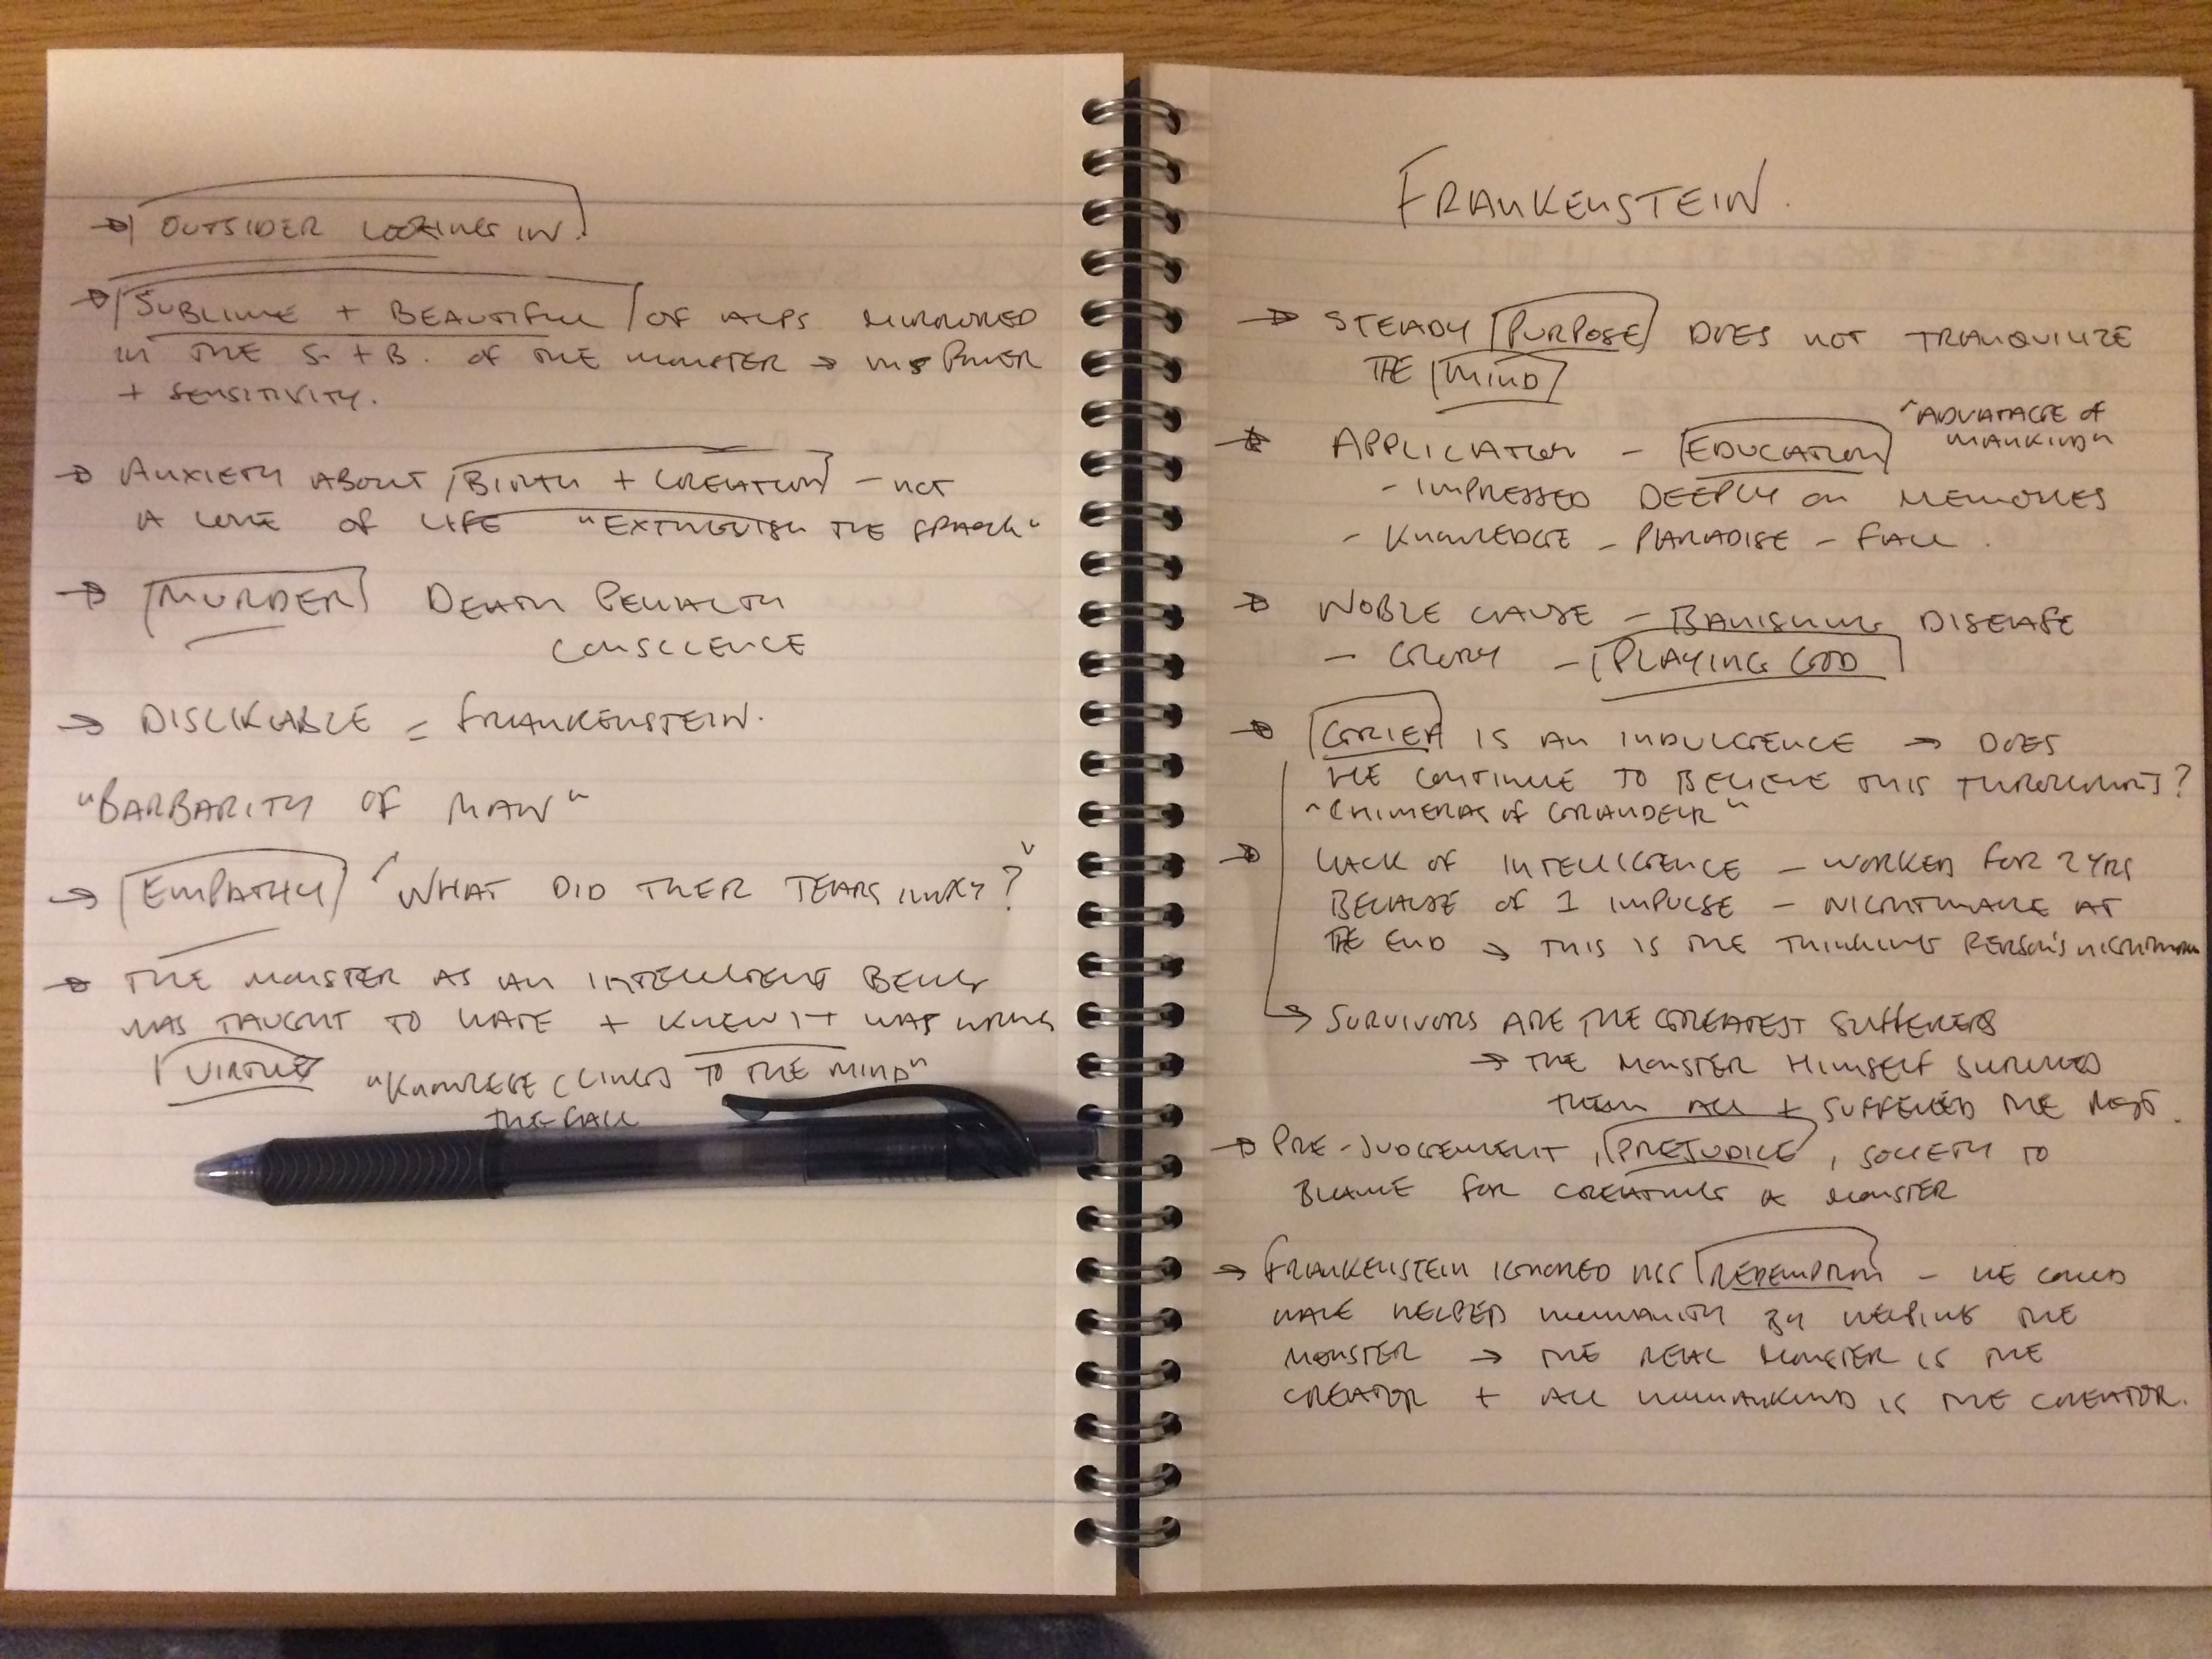 → OUTSIDER LOOKING IN.
→ SUBLIME + BEAUTIFUL OF ALPS MIRRORED
IN THE S. + B. OF THE MONSTER → HIS POWER
+ SENSITIVITY.
→ ANXIETY ABOUT BIRTH + CREATION - NOT
A LOVE OF LIFE "EXTINGUISH THE SPARK"
→ MURDER DEATH PENALTY
CONSCIENCE
→ DISLIKABLE = FRANKENSTEIN.
"BARBARITY OF MAN"
→ EMPATHY "WHAT DID THEIR TEARS IMPLY?"
→ THE MONSTER AS AN INTELLIGENT BEING
WAS TAUGHT TO HATE + KNEW IT WAS WRONG
VIRTUE "KNOWLEGE CLINGS TO THE MIND"
THE FALL
FRANKENSTEIN.
→ STEADY PURPOSE DOES NOT TRANQUILIZE
THE MIND
→ APPLICATION - EDUCATION "ADVANTAGE OF
MANKIND"
- IMPRESSED DEEPLY ON MEMORIES
- KNOWLEDGE - PARADISE - FALL.
→ NOBLE CAUSE - BANISHING DISEASE
- GLORY - PLAYING GOD
→ GRIEF IS AN INDULGENCE → DOES
HE CONTINUE TO BELIEVE THIS THROUGHOUT?
"CHIMERAS OF GRANDEUR"
→ LACK OF INTELLIGENCE - WORKED FOR 2 YRS
BECAUSE OF 1 IMPULSE - NIGHTMARE AT
THE END → THIS IS THE THINKING PERSON'S NIGHTMARE
→ SURVIVORS ARE THE GREATEST SUFFERERS
→ THE MONSTER HIMSELF SURVIVED
THEM ALL + SUFFERED THE MOST.
→ PRE-JUDGEMENT, PREJUDICE, SOCIETY TO
BLAME FOR CREATING A MONSTER
→ FRANKENSTEIN IGNORED HIS REDEMPTION - HE COULD
HAVE HELPED HUMANITY BY HELPING THE
MONSTER → THE REAL MONSTER IS THE
CREATOR + ALL HUMANKIND IS THE CREATOR.